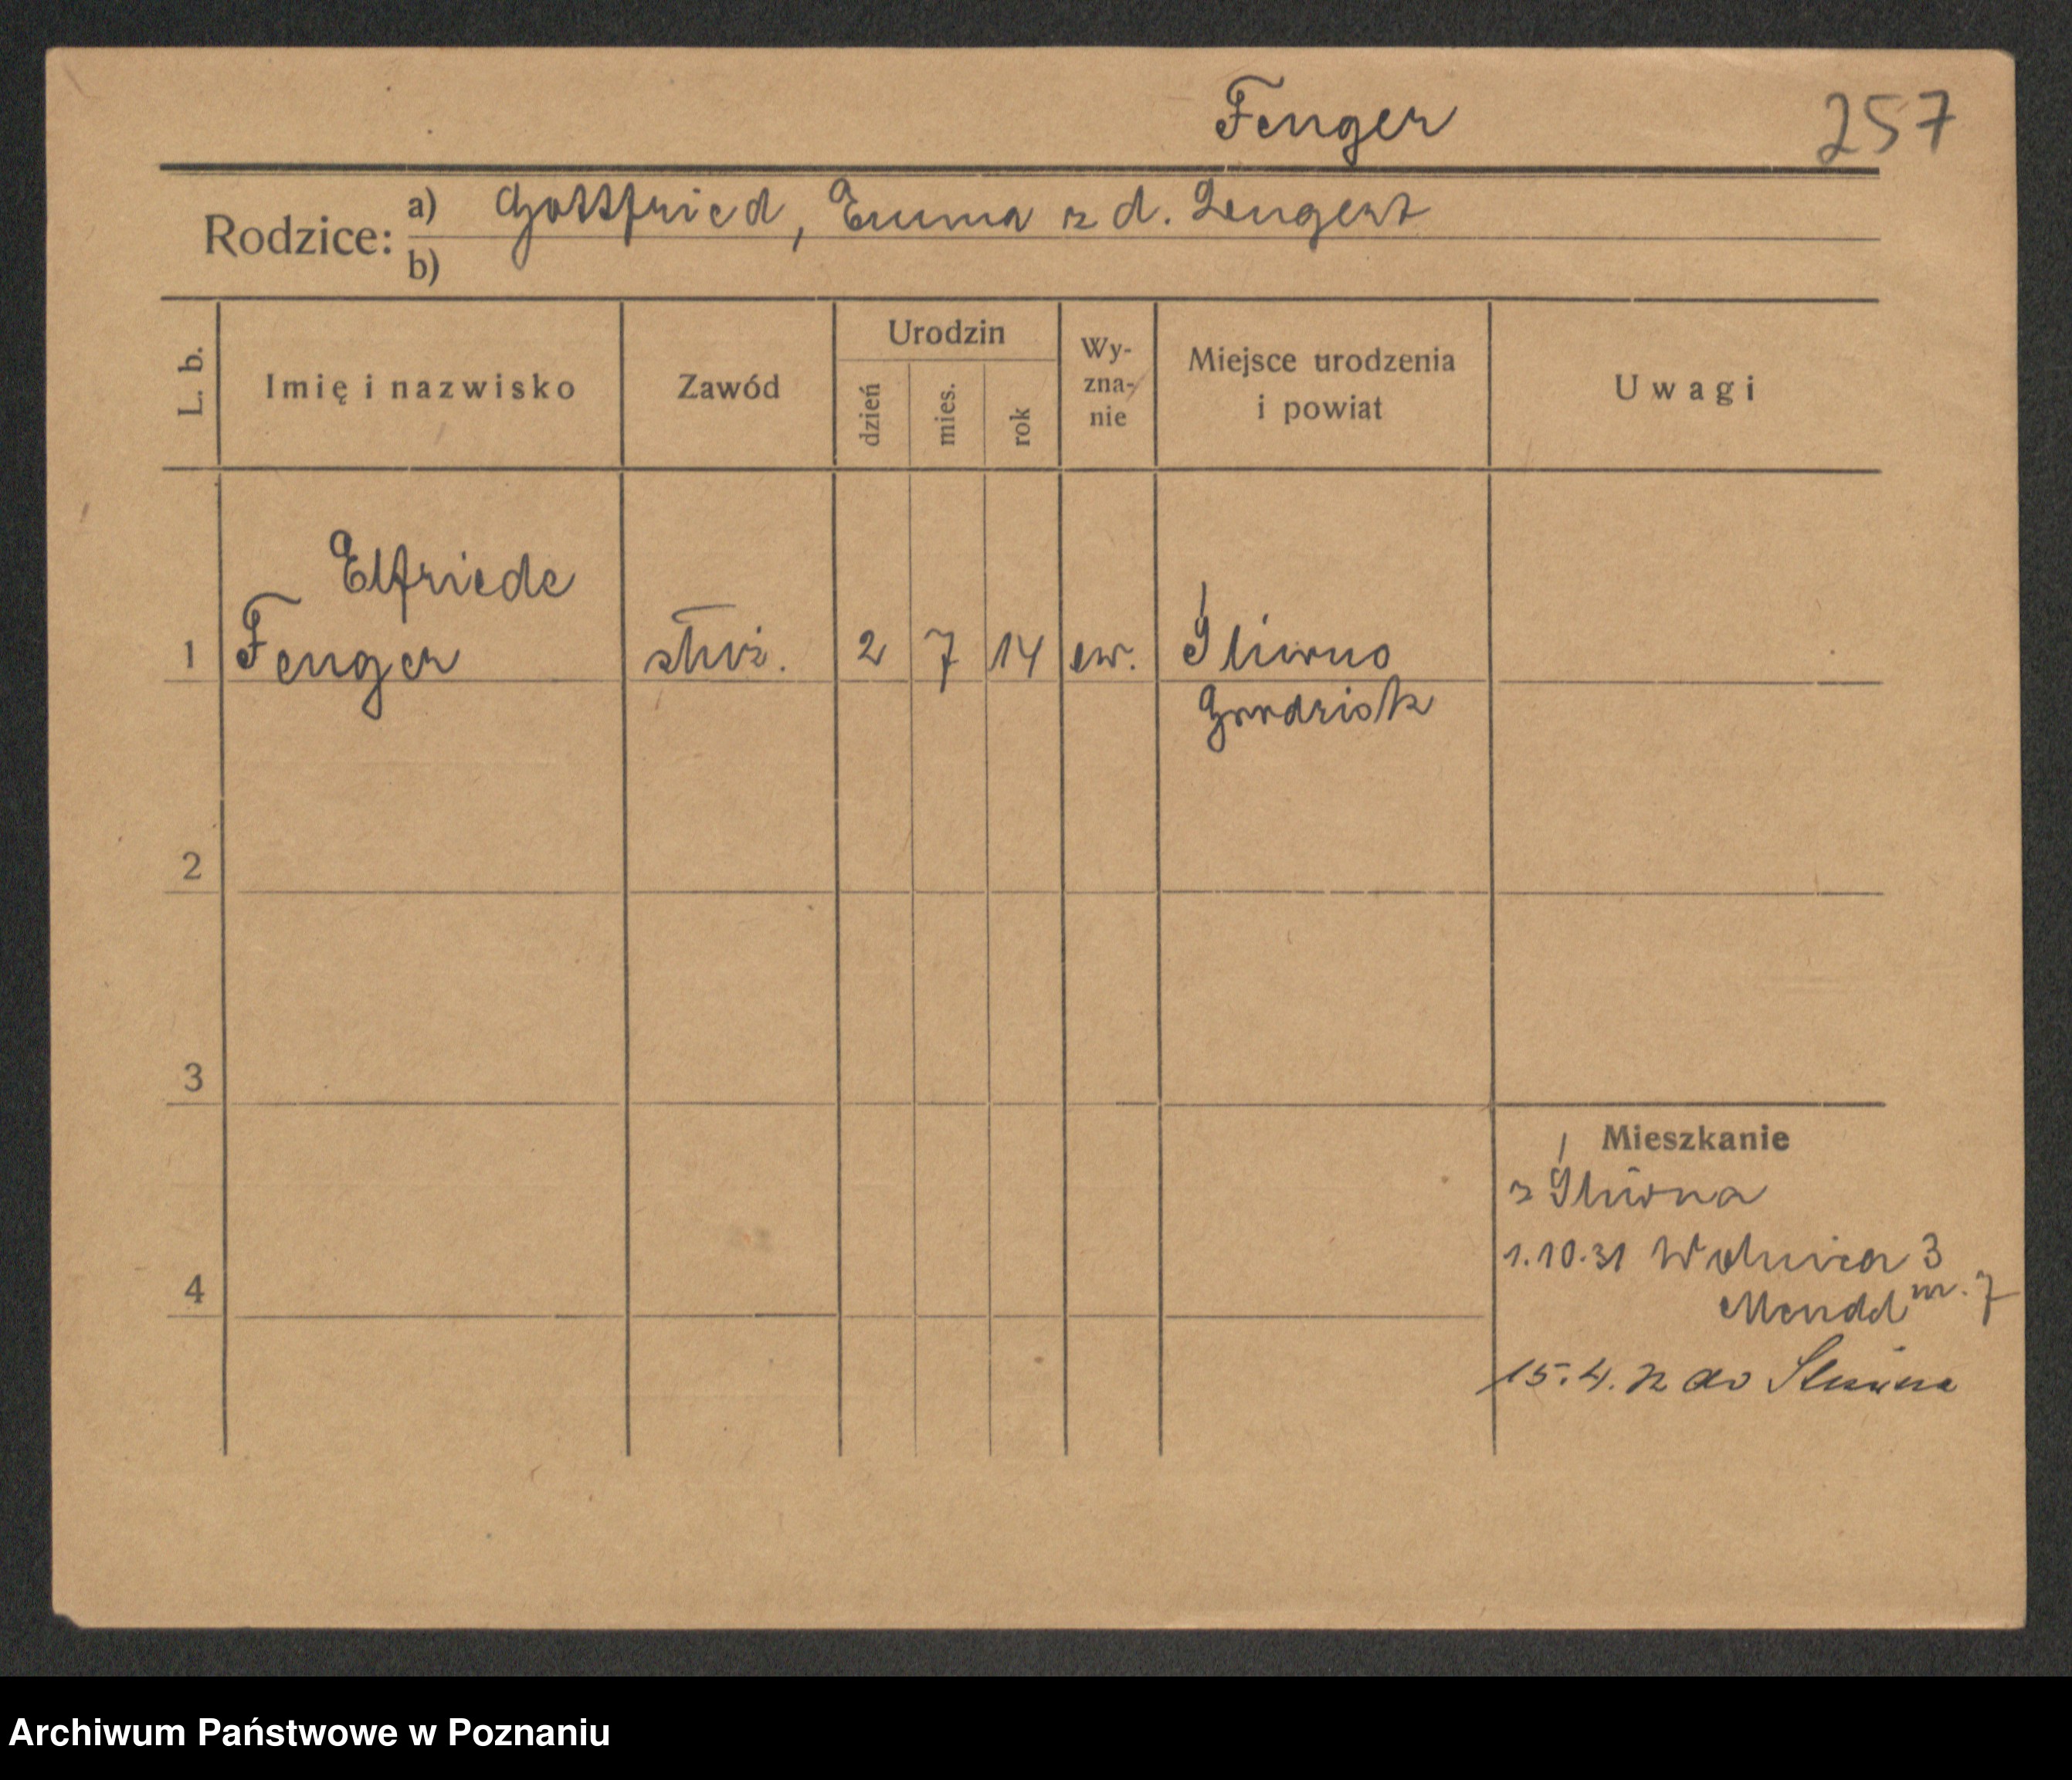 Fenger 257
Rodzice: a) Gottfried, Emma z d. Lengert
b)
L. b. Imię i nazwisko Zawód Urodzin dzień mies. rok Wy-zna-nie Miejsce urodzenia i powiat Uwagi
Elfriede
1 Fenger służ. 2 7 14 ew. Śliwno
Grodzisk
2
3
Mieszkanie
z Śliwna
1.10.31 Wolnica 3
4 m. 7
15.4. do Śliwna
Archiwum Państwowe w Poznaniu